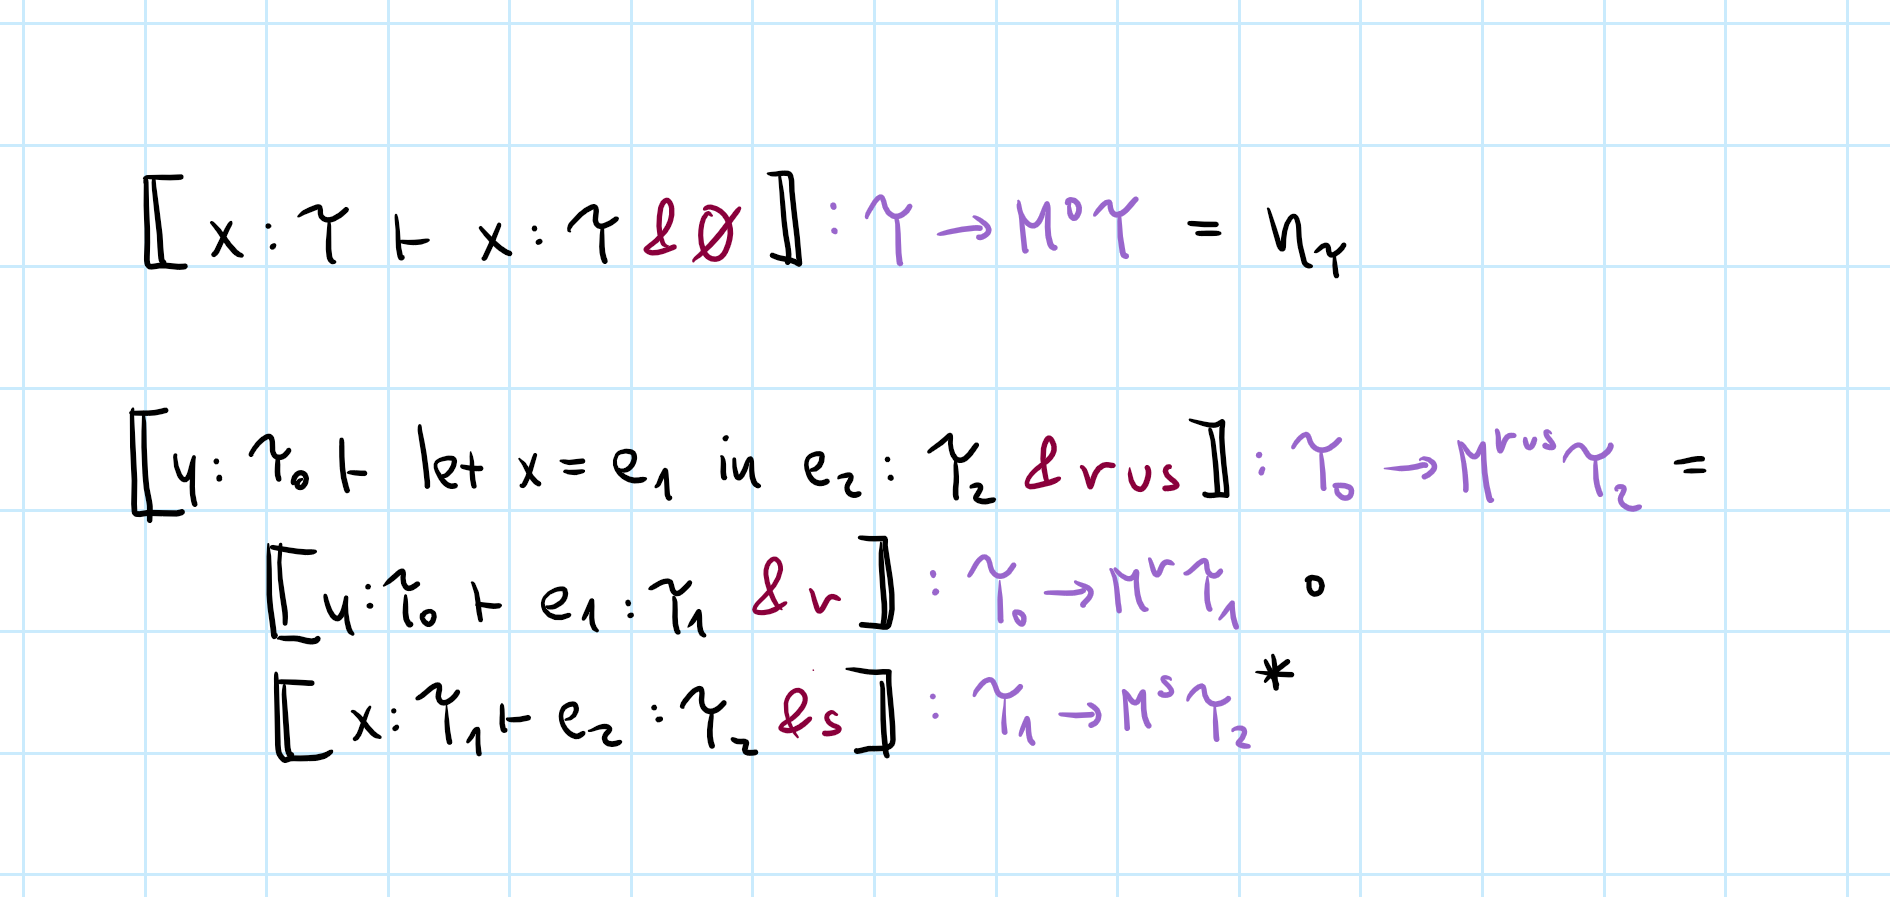 ⟦ x : τ ⊢ x : τ & ∅ ⟧ : τ → M⁰τ = η_τ
⟦ y : τ₀ ⊢ let x = e₁ in e₂ : τ₂ & r ∪ s ⟧ : τ₀ → M^{r∪s} τ₂ =
⟦ y : τ₀ ⊢ e₁ : τ₁ & r ⟧ : τ₀ → M^r τ₁ ∘
⟦ x : τ₁ ⊢ e₂ : τ₂ & s ⟧ : τ₁ → M^s τ₂ *